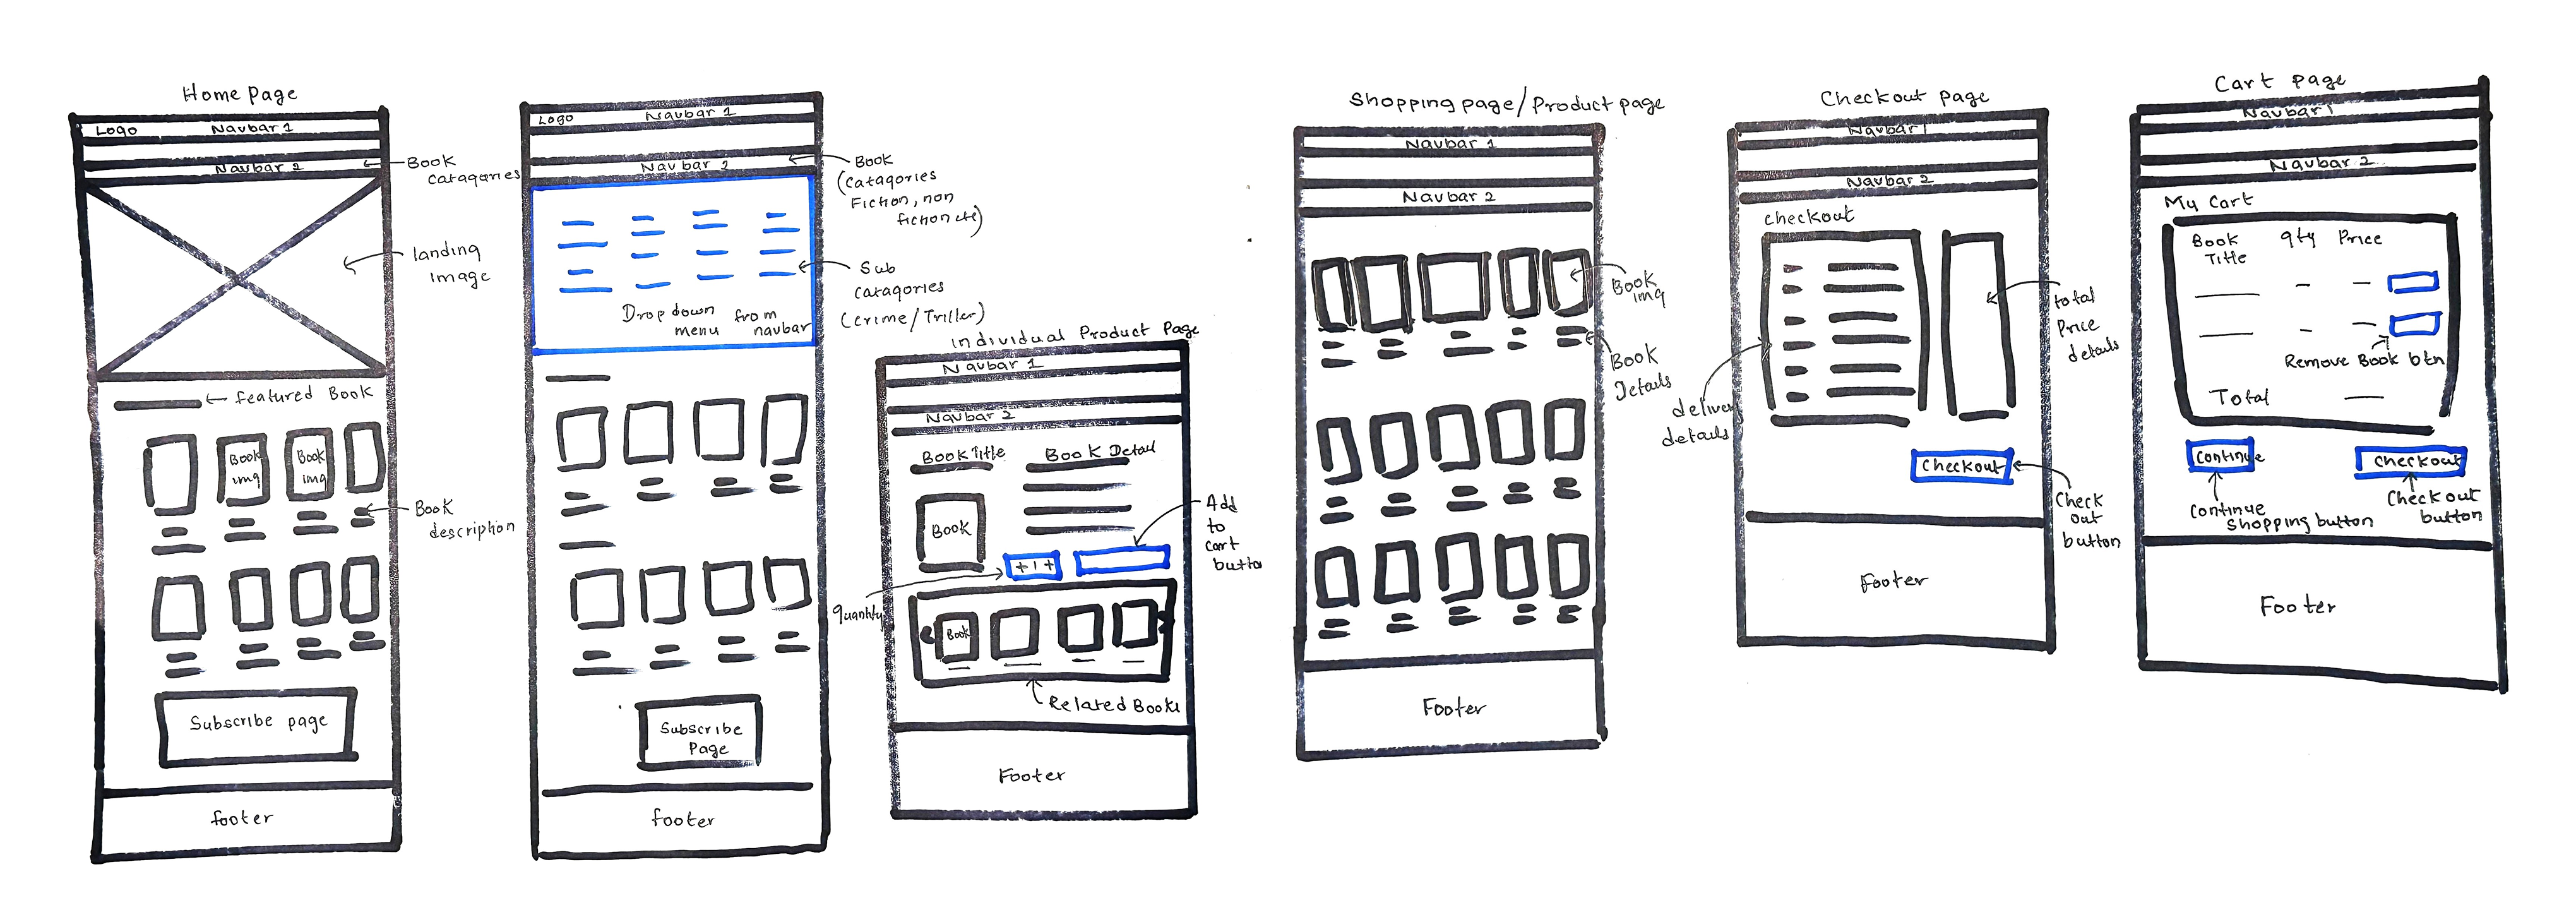 Home page
Logo Navbar 1
Navbar 2
Book
Catagories
landing
image
featured Book
Book
img
Book
img
Book
description
Subscribe page
footer
Logo Navbar 1
Navbar 2
Book
(Catagories
Fiction, non
fiction etc)
Sub
Catagories
(crime/Triller)
Drop down
menu from
navbar
Subscribe
Page
footer
individual Product Page
Navbar 1
Navbar 2
Book Title
Book Detail
Book
Add
to
cart
button
+ 1 +
quantity
Book
Related Books
Footer
Shopping page/Product page
Navbar 1
Navbar 2
Book
img
Book
Details
Footer
Checkout page
Navbar 1
Navbar 2
checkout
total
Price
details
delivery
details
Checkout
Check
out
button
footer
Cart page
Navbar 1
Navbar 2
My Cart
Book
Title
qty
Price
Remove Book btn
Total
Continue
Checkout
Continue
shopping button
Checkout
button
Footer